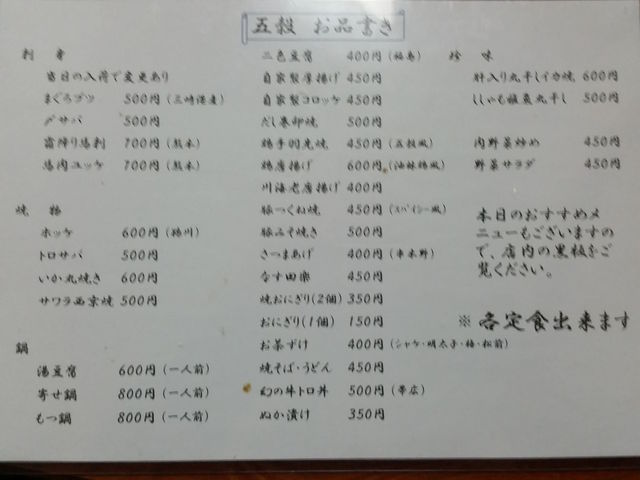 五穀 お品書き
刺 身
当日の入荷で変更あり
まぐろブツ 500円(三崎港産)
〆サバ 500円
霜降り馬刺 700円(熊本)
馬肉ユッケ 700円(熊本)
焼 物
ホッケ 600円
トロサバ 500円
いか丸焼き 600円
サワラ西京焼 500円
鍋
湯豆腐 600円(一人前)
寄せ鍋 800円(一人前)
もつ鍋 800円(一人前)
二色豆腐 400円(福島)
自家製厚揚げ 450円
自家製コロッケ 450円
だし巻卵焼 500円
鶏手羽先焼 450円(五穀風)
鶏唐揚げ 600円(油淋鶏風)
川海老唐揚げ 400円
豚つくね焼 450円(スパイシー風)
豚みそ焼き 500円
さつまあげ 400円(串木野)
なす田楽 450円
焼おにぎり(2個) 350円
おにぎり(1個) 150円
お茶ずけ 400円(シャケ・明太子・梅・松前)
焼そば・うどん 450円
幻の牛トロ丼 500円(帯広)
ぬか漬け 350円
珍 味
肝入り丸干しイカ焼 600円
ししゃも 丸干し 500円
肉野菜炒め 450円
野菜サラダ 450円
本日のおすすめメ
ニューもございますの
で、店内の黒板をご
覧ください。
※ 各定食出来ます